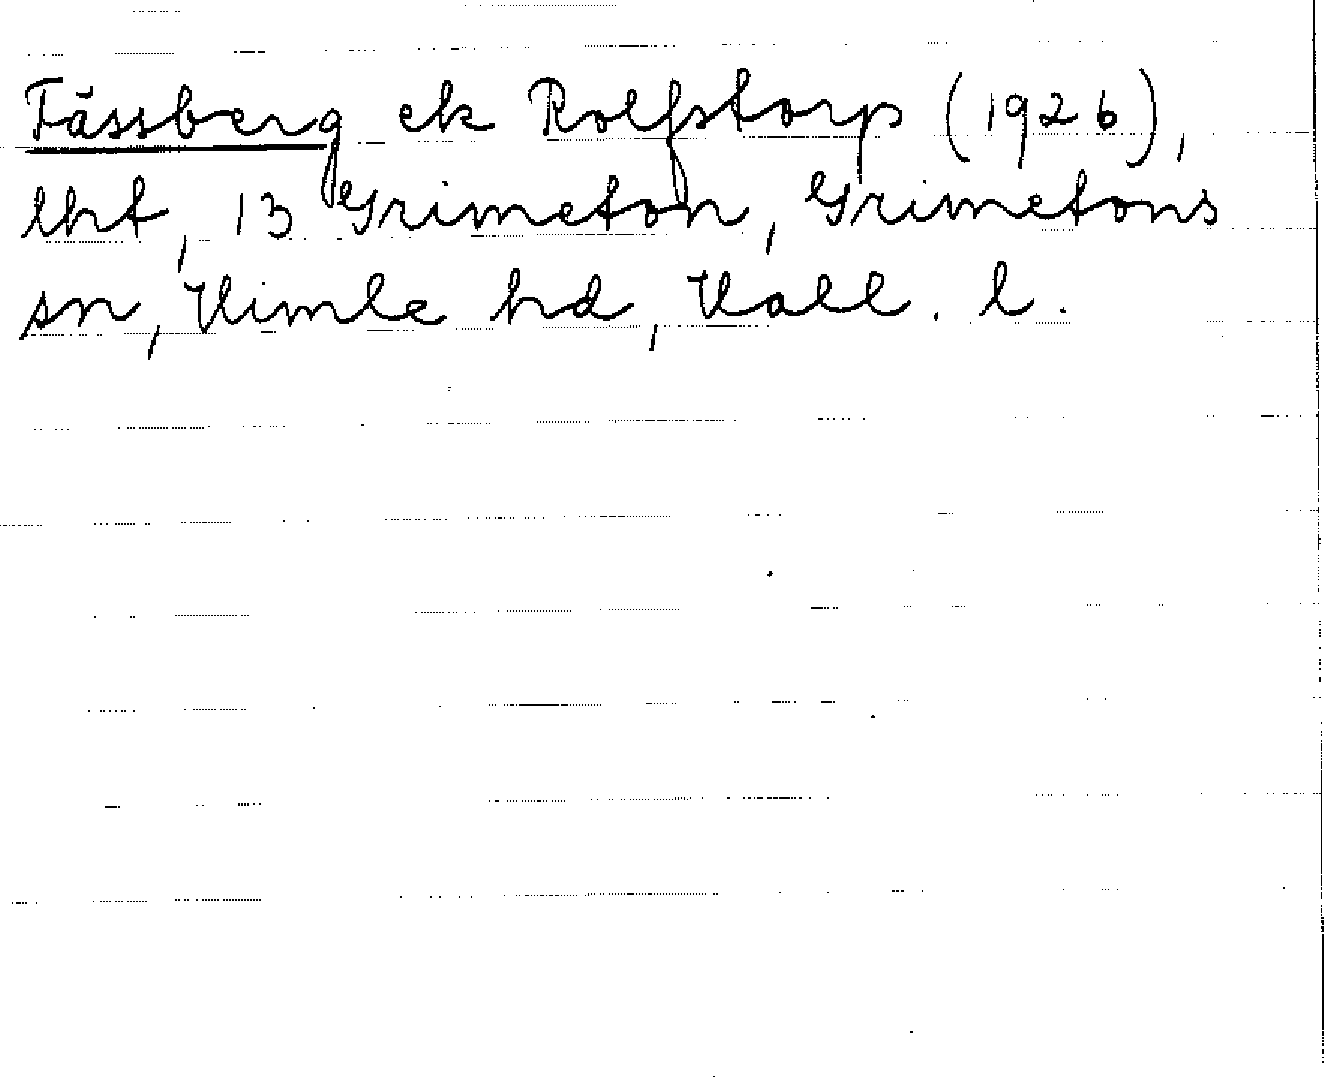 Fässberg ek Rolfstorp (1926),
lht, 13 Grimeton, Grimetons
sn, Himle hd, Hall. l.